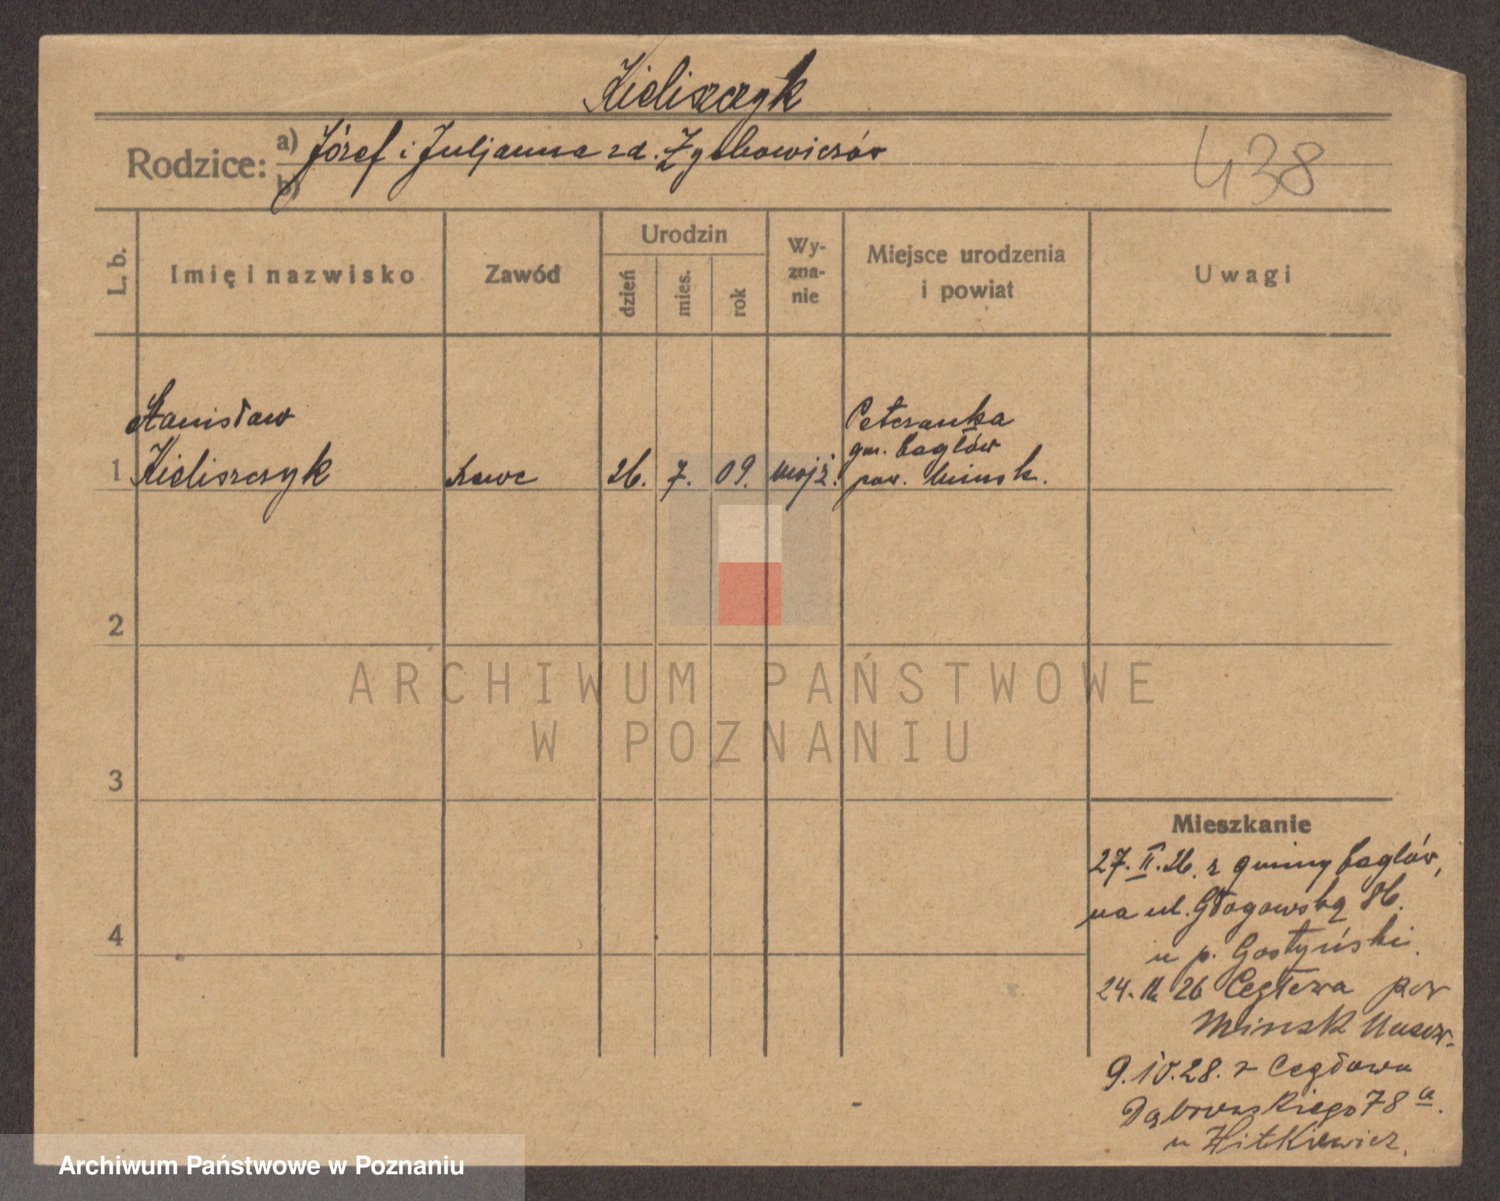 Kieliszczyk
Rodzice: a) Józef i Juljanna zd.
b)
438
L. b.
Imię i nazwisko
Zawód
Urodzin
dzień
mies.
rok
Wy-
zna-
nie
Miejsce urodzenia
i powiat
Uwagi
Stanisław
1 Kieliszczyk
26. 7. 09.
gm.
pow. Mińsk.
2
3
4
Mieszkanie
27. II. 26. z gminy
na ul. Głogowską 86.
u p. Gostyński.
24. 26 Cegłowa pow
Mińsk
9.10.28. z Cegłowa
Dąbrowskiego 78 a.
u Witkiewicz.
ARCHIWUM PAŃSTWOWE
W POZNANIU
Archiwum Państwowe w Poznaniu